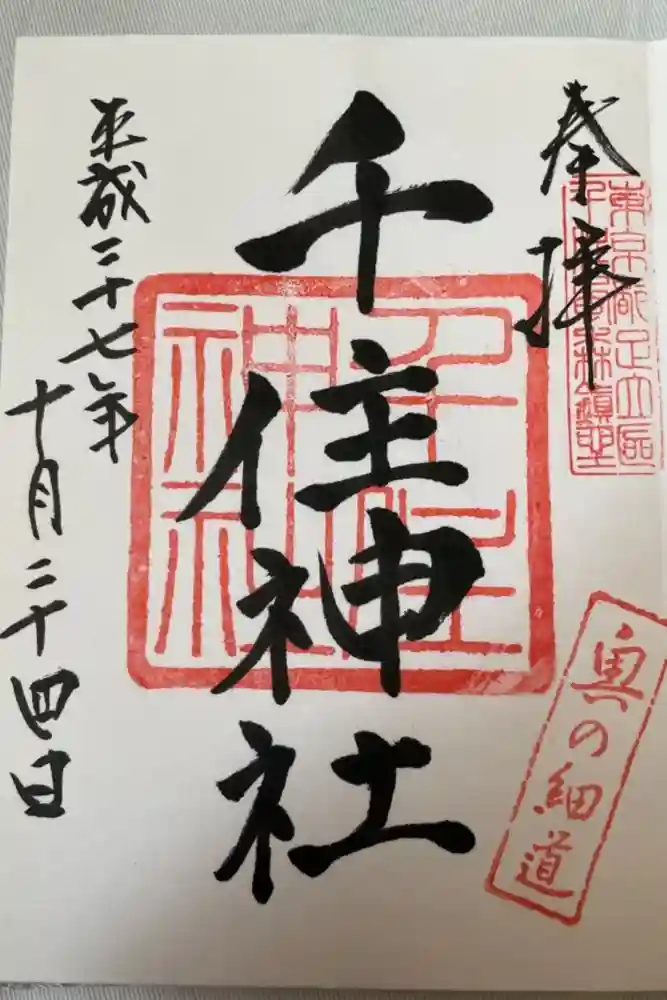 奉拝
東京都足立区
千住最森鎮聖
千住神社
千住
神社
奥の細道
平成二十七年
十月二十四日